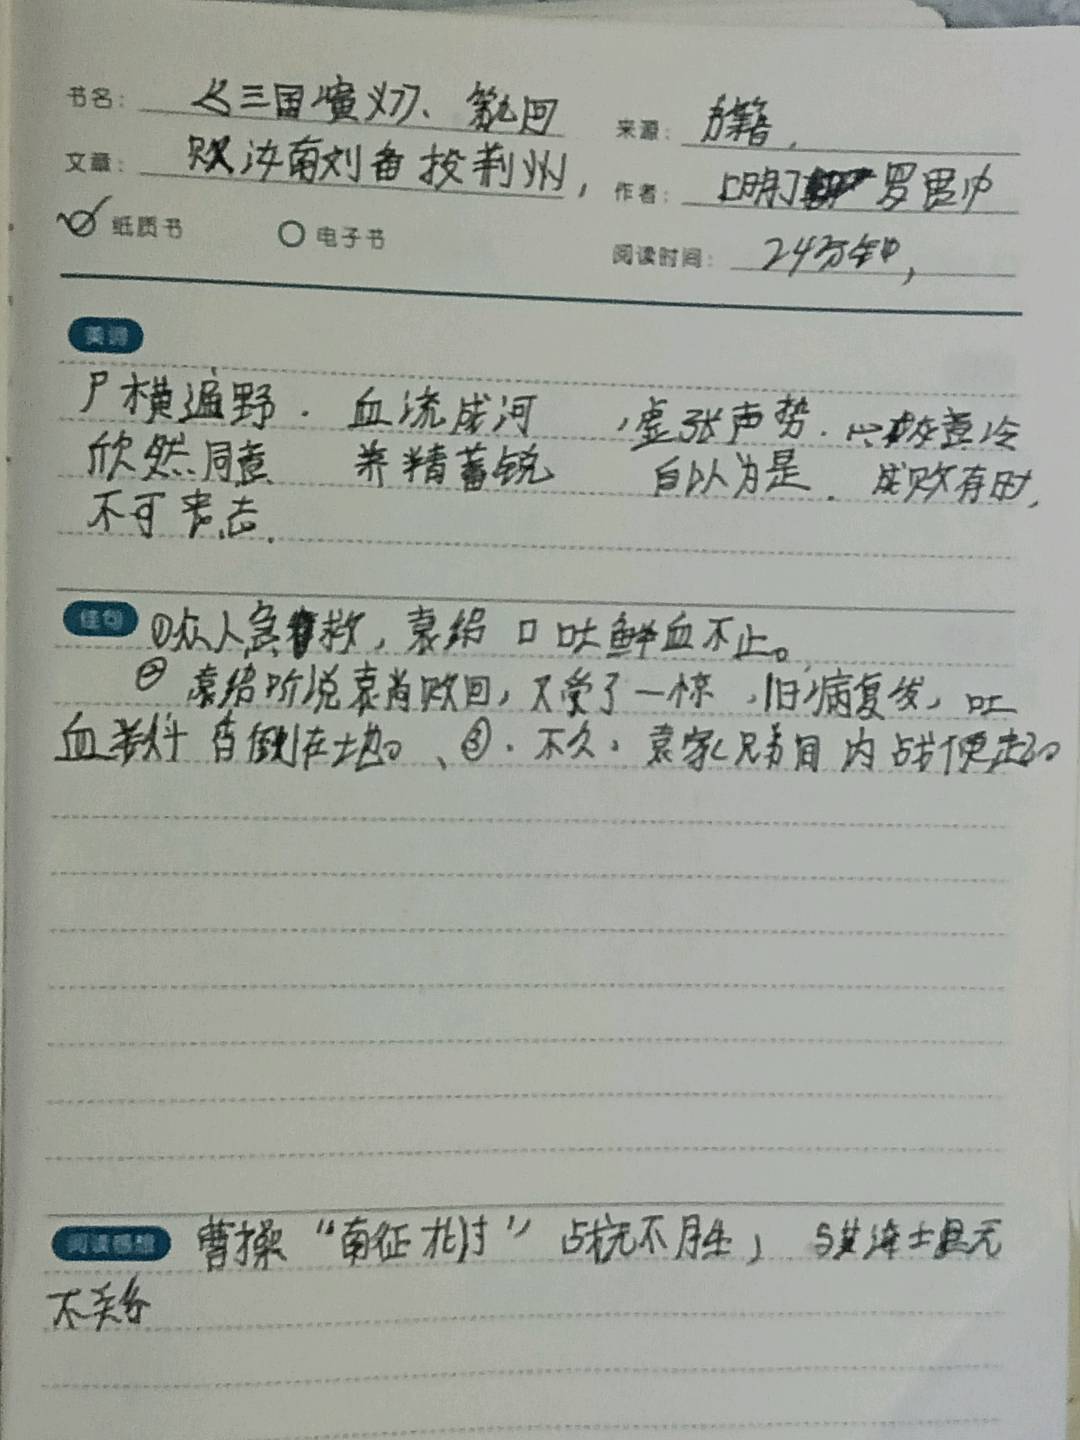 书名： 《三国演义》、第九回
来源： 书籍，
文章： 败汝南刘备投荆州，
作者： [明] 罗贯中
纸质书 电子书
阅读时间： 24分钟，
美词
尸横遍野． 血流成河 ，虚张声势．心灰意冷
欣然同意 养精蓄锐 自以为是． 成败有时，
不可丧志．
佳句 ①众人急救，袁绍口吐鲜血不止。
② 袁绍听说袁尚败回，又受了一惊，旧病复发，吐
血数斗 昏倒在地。、③．不久，袁家兄弟间内战便起了。
阅读感想 曹操“南征北讨”战无不胜，与其谋士
不关系